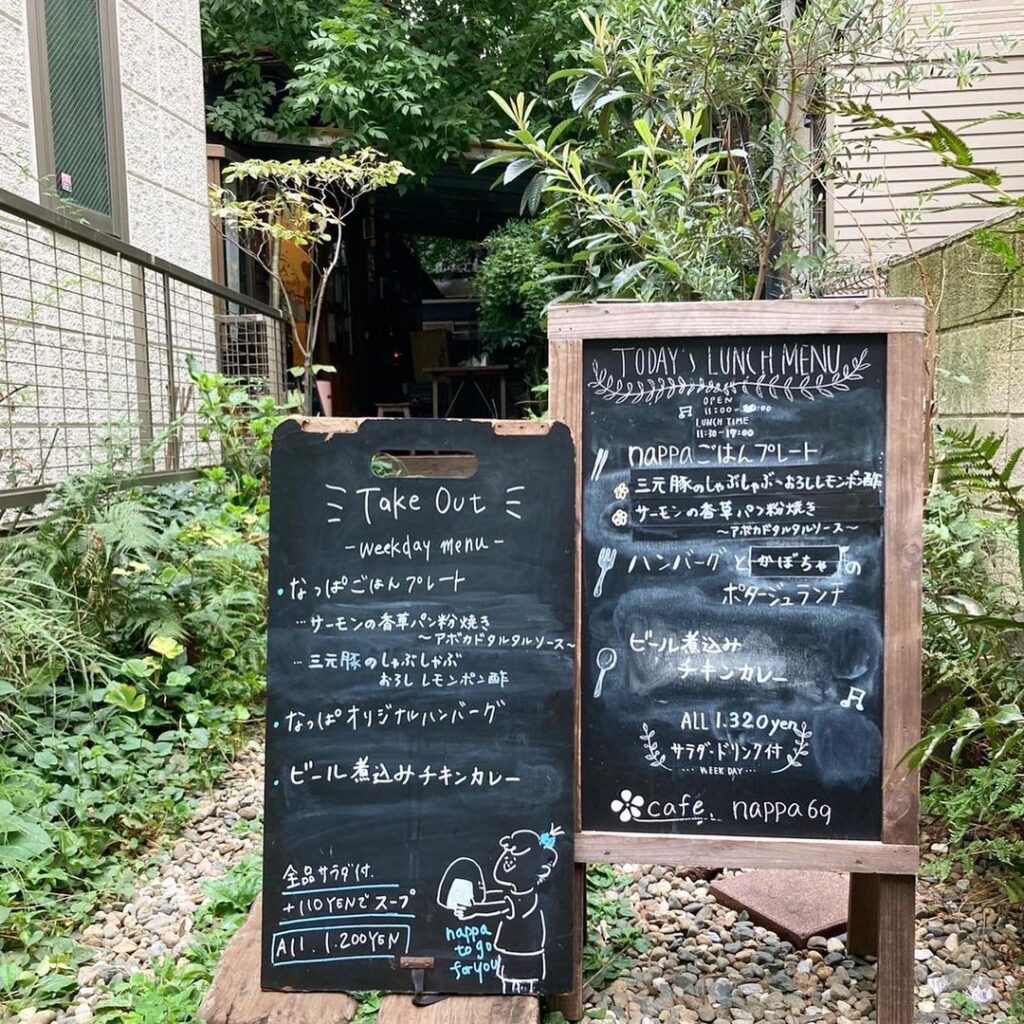 Take Out
-weekday menu-
・なっぱごはんプレート
…サーモンの香草パン粉焼き
〜アボカドタルタルソース〜
…三元豚のしゃぶしゃぶ
おろしレモンポン酢
・なっぱオリジナルハンバーグ
・ビール煮込みチキンカレー
全品サラダ付.
+110YENでスープ
All. 1.200YEN
nappa
to go
for you
TODAY's LUNCH MENU
OPEN
LUNCH TIME
nappaごはんプレート
三元豚のしゃぶしゃぶ〜おろしレモンポン酢
サーモンの香草パン粉焼き
〜アボカドタルタルソース〜
ハンバーグとかぼちゃの
ポタージュランチ
ビール煮込み
チキンカレー
ALL 1.320yen
サラダ・ドリンク付
…WEEK DAY…
café nappa69